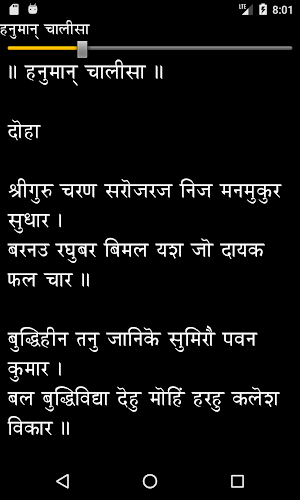 LTE 8:01
हनुमान् चालीसा
॥ हनुमान् चालीसा ॥
दॊहा
श्रीगुरु चरण सरॊजरज निज मनमुकुर
सुधार ।
बरनउ रघुबर बिमल यश जॊ दायक
फल चार ॥
बुद्धिहीन तनु जानिकॆ सुमिरौ पवन
कुमार ।
बल बुद्धिविद्या दॆहु मॊहिं हरहु कलॆश
विकार ॥